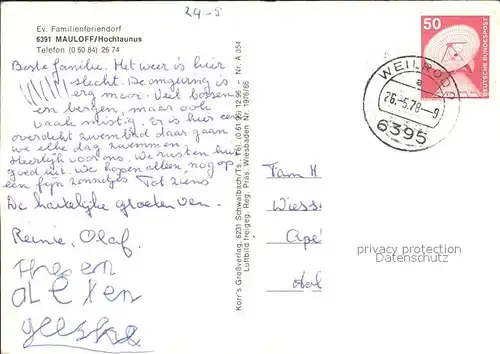 24-5
Ev. Familienferiendorf
6391 MAULOFF/Hochtaunus
Telefon (0 60 84) 26 74
Beste familie. Het weer is hier
slecht. De omgeving is
erg mooi. Veel bossen
en bergen, maar ook
vaak mistig. Er is hier een
overdekt zwembad daar gaan
we elke dag zwemmen.
Heerlijk voor ons. We rusten hier
goed uit. We hopen alleen nog op
een fijn zonnetje. Tot ziens
De hartelijke groeten van.
Reinie, Olaf.
Theo en
alexen
geeske
Korr's Großverlag, 6231 Schwalbach/Ts.
Luftbild freigeg. Reg. Präs. Wiesbaden Nr. 1976/65
Nr. A 354
50
DEUTSCHE BUNDESPOST
WEILROD
26.-5.78--9
6395
Fam H
Wiess
Apel
privacy protection
Datenschutz